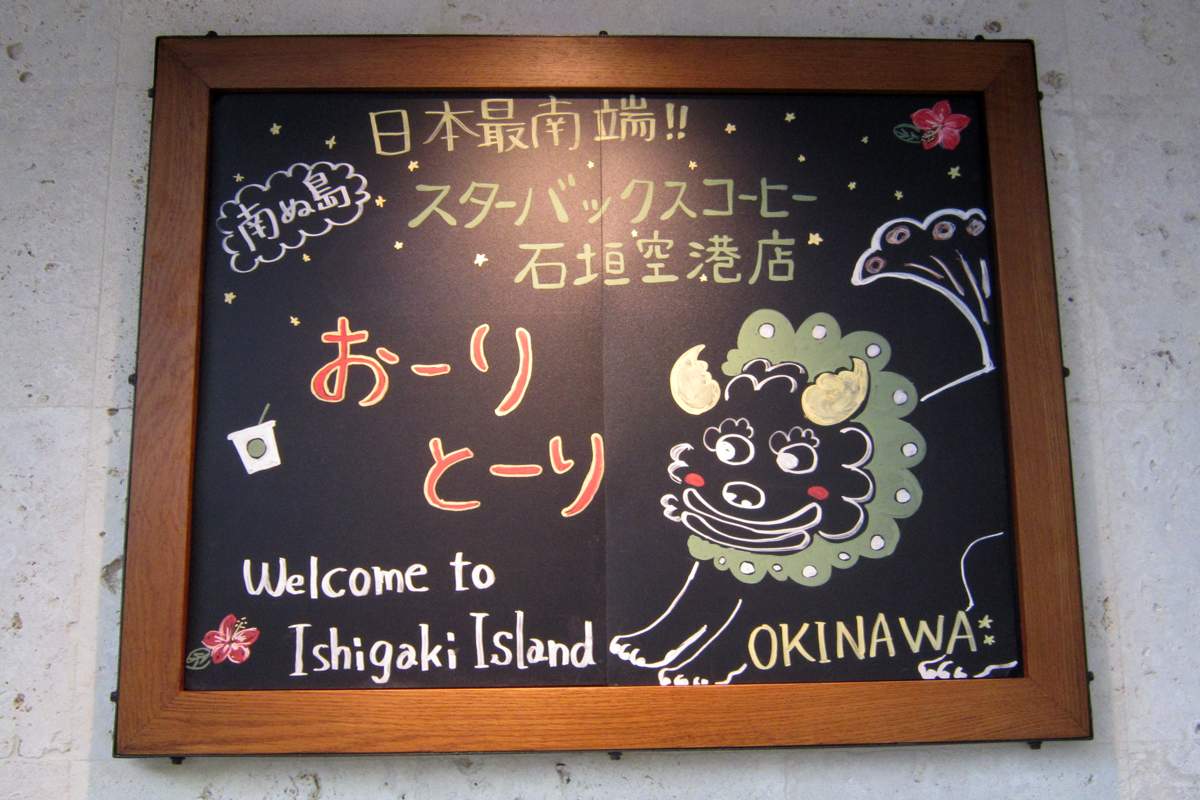 日本最南端!!
南ぬ島
スターバックスコーヒー
石垣空港店
おーり
とーり
Welcome to
Ishigaki Island
OKINAWA